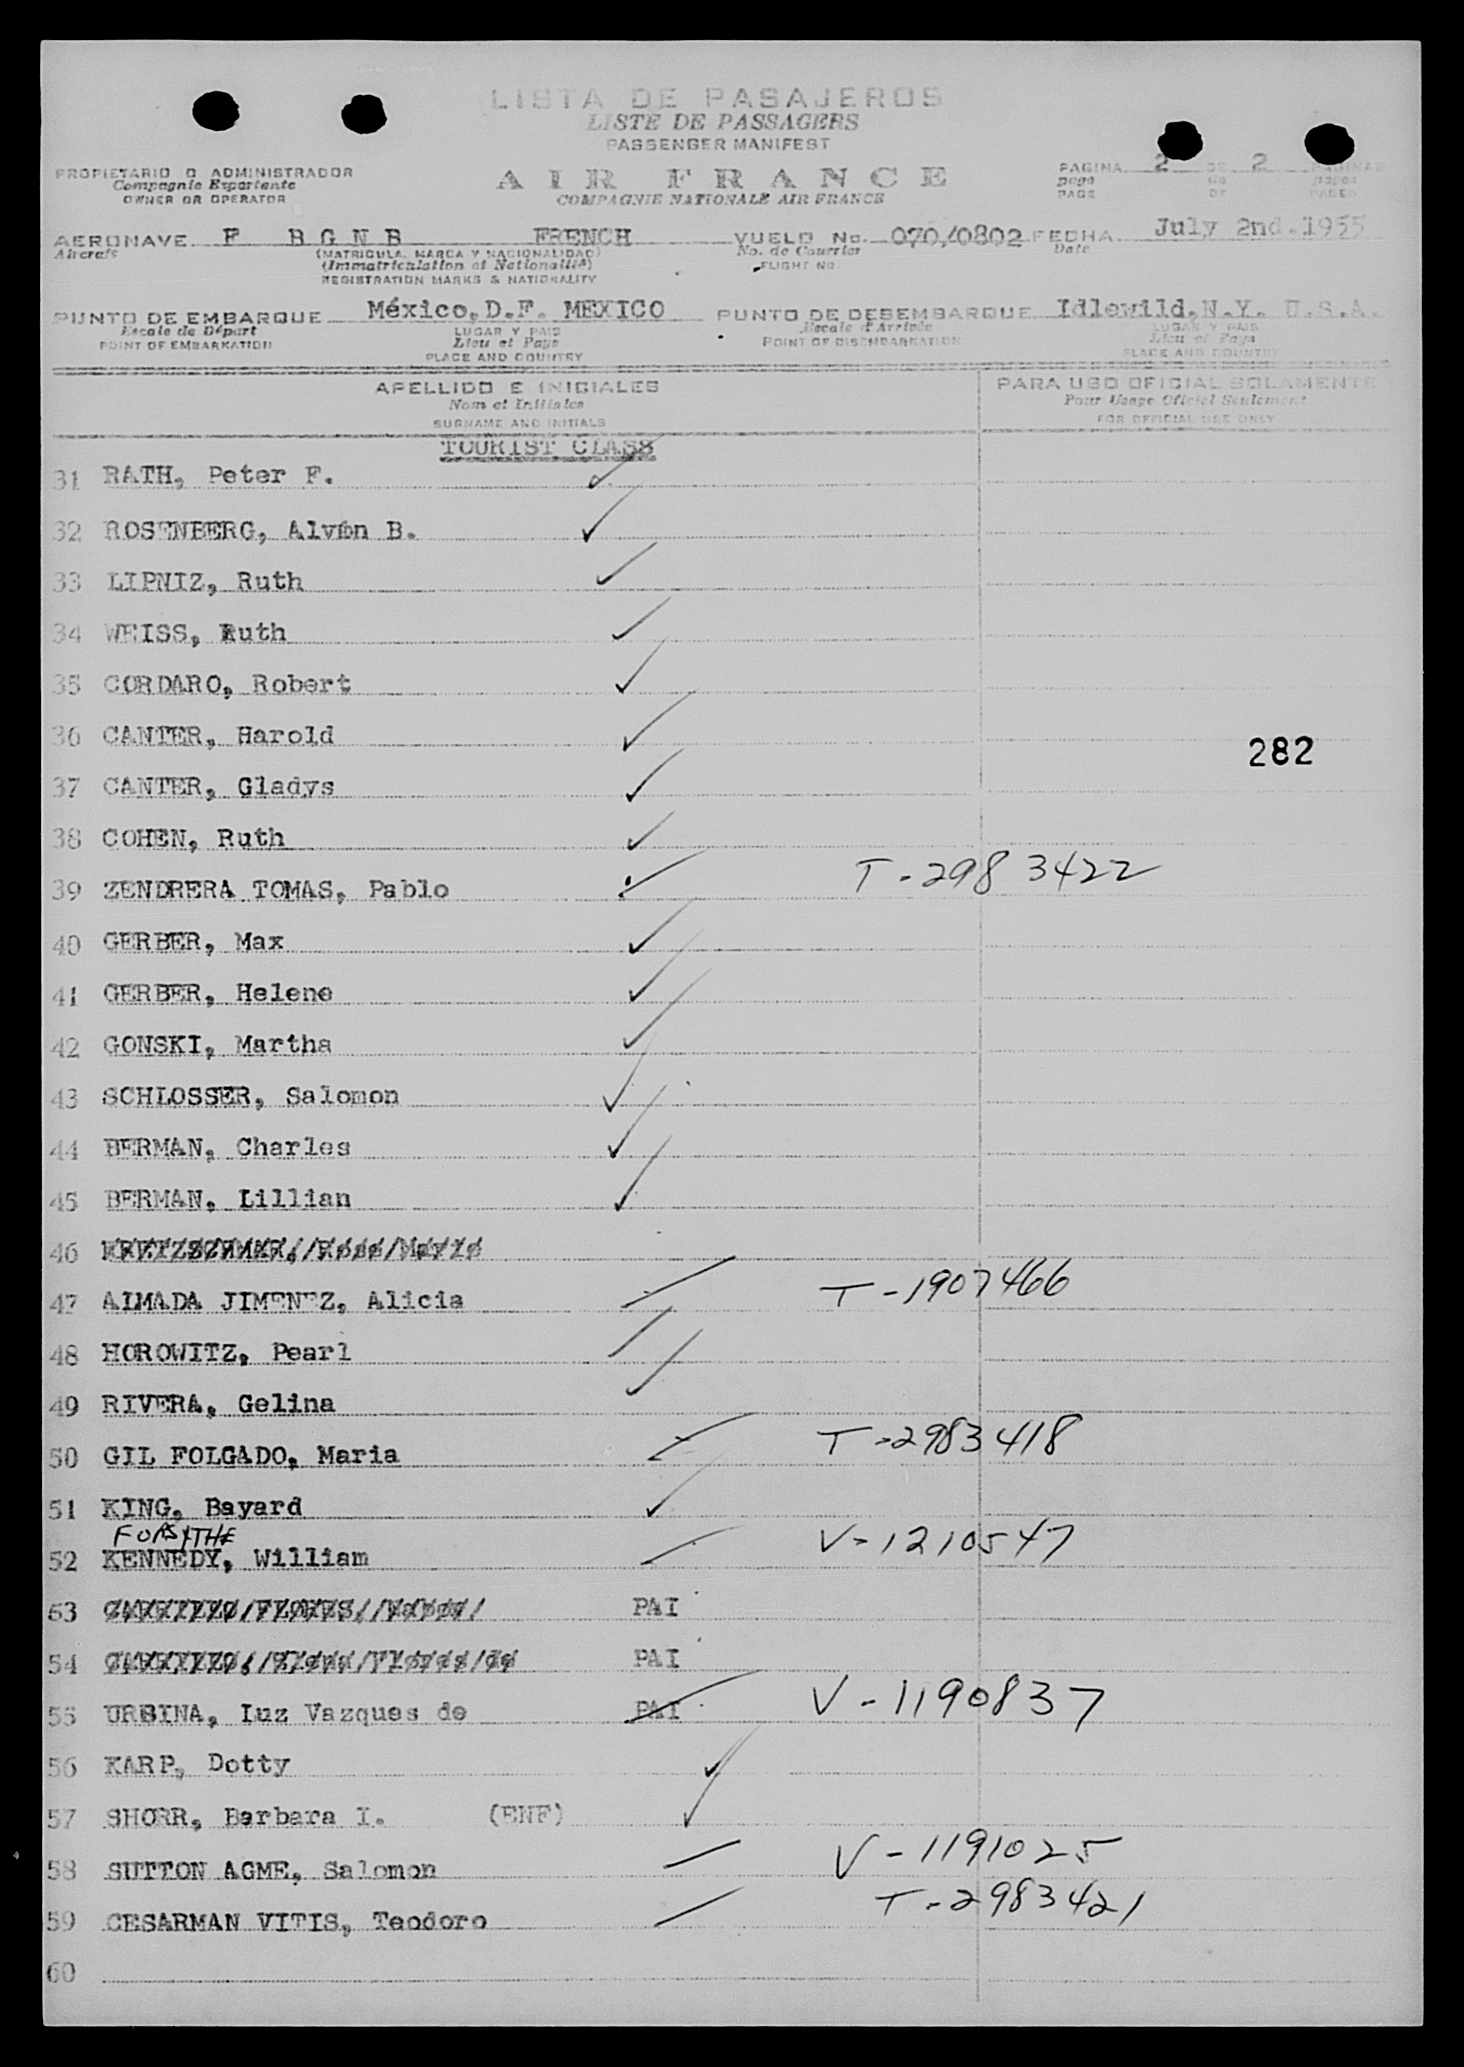 LISTA DE PASAJEROS
LISTE DE PASSAGERS
PASSENGER MANIFEST
PROPIETARIO O ADMINISTRADOR
Compagnie Exportante
OWNER OR OPERATOR
AIR FRANCE
COMPAGNIE NATIONALE AIR FRANCE
PAGINA 2 DE 2 PAGINAS
page de pages
PAGE OF PAGES
AERONAVE F BGNB FRENCH VUELO No. 070/0802 FECHA July 2nd.1955
Aircraft (MATRICULA, MARCA Y NACIONALIDAD) No. de Courrier Date
(Immatriculation et Nationalité) FLIGHT No.
REGISTRATION MARKS & NATIONALITY
PUNTO DE EMBARQUE México,D.F. MEXICO PUNTO DE DESEMBARQUE Idlewild,N.Y. U.S.A.
Escale de Départ LUGAR Y PAIS Escale d'Arrivée LUGAR Y PAIS
POINT OF EMBARKATION Lieu et Pays POINT OF DISEMBARKATION Lieu et Pays
PLACE AND COUNTRY PLACE AND COUNTRY
APELLIDO E INICIALES PARA USO OFICIAL SOLAMENTE
Nom et Initiales Pour Usage Officiel Seulement
SURNAME AND INITIALS FOR OFFICIAL USE ONLY
TOURIST CLASS
31 RATH, Peter F.
32 ROSENBERG, Alvin B.
33 LIPNIZ, Ruth
34 WEISS, Ruth
35 CORDARO, Robert
36 CANTER, Harold
282
37 CANTER, Gladys
38 COHEN, Ruth
39 ZENDRERA TOMAS, Pablo T-2983422
40 GERBER, Max
41 GERBER, Helene
42 GONSKI, Martha
43 SCHLOSSER, Salomon
44 BERMAN, Charles
45 BERMAN, Lillian
46
47 AIMADA JIMENEZ, Alicia T-1907466
48 HOROWITZ, Pearl
49 RIVERA, Gelina
50 GIL FOLGADO, Maria T-2983418
51 KING, Bayard
FORSYTHE
52 KENNEDY, William V-1210547
53 PAI
54 PAI
55 URBINA, Luz Vazques de PAI V-1190837
56 KARP, Dotty
57 SHORR, Barbara I. (ENF)
58 SUTTON AGME, Salomon V-1191025
59 CESARMAN VITIS, Teodoro T-2983421
60